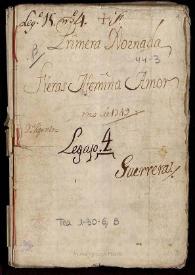 Leg.º 15. nº 4.
Primera Jornada
44-3
Fieras Afemina Amor
Año de 1749
Legajo, 4
Guerrera
Tea 1-30-6, B